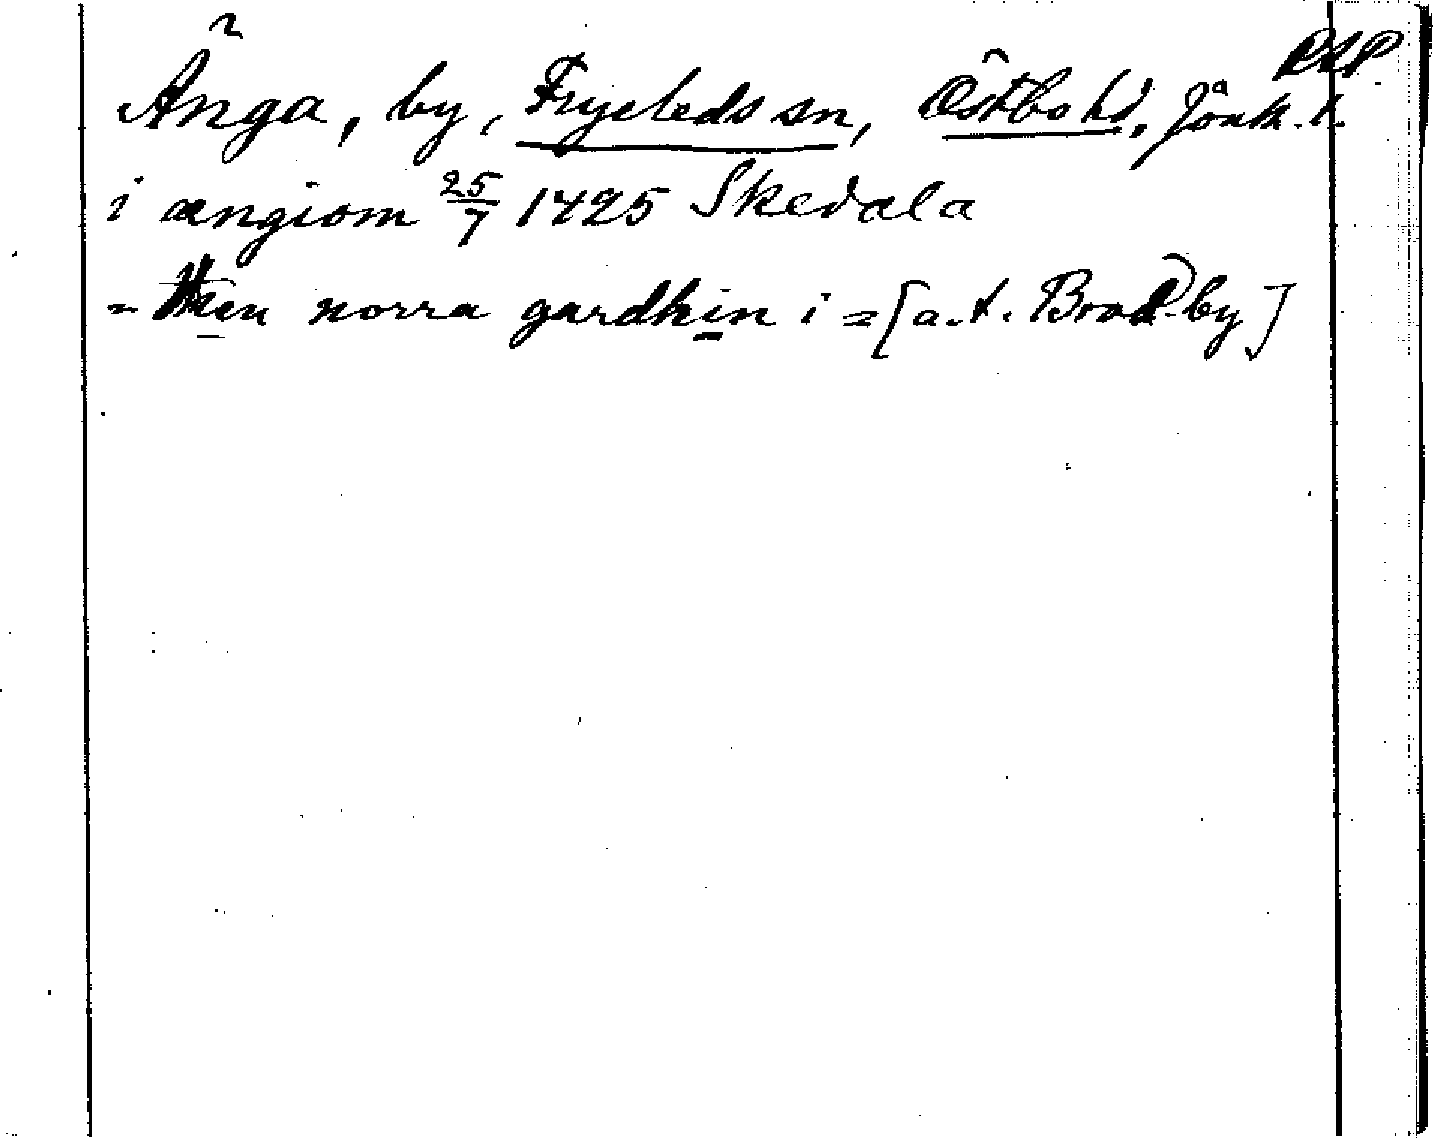 RAP
Änga, by, Fryeleds sn, Östbo hd, Jönk. l.
i ængiom 25/7 1425 Skedala
= then norra gardhin i = [a.t. Broddby]